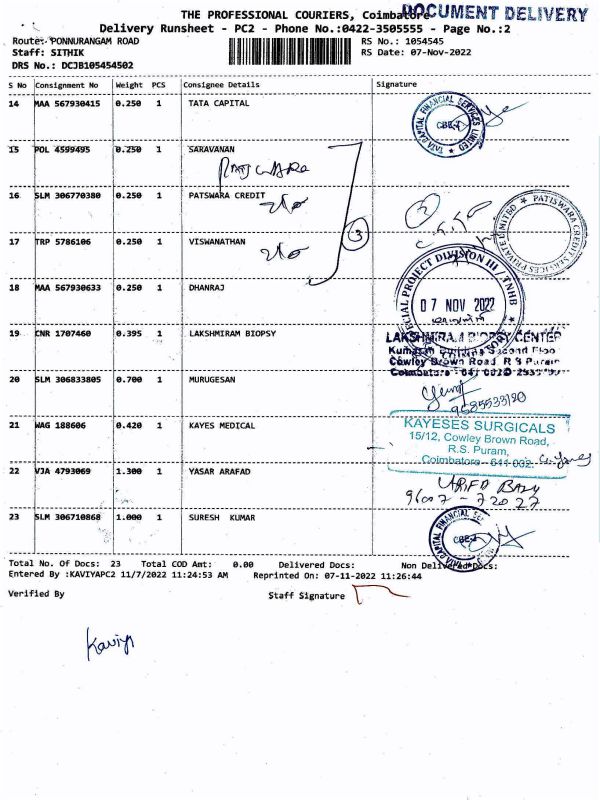 THE PROFESSIONAL COURIERS, Coimbatore
DOCUMENT DELIVERY
Delivery Runsheet - PC2 - Phone No.:0422-3505555 - Page No.:2
Route: PONNURANGAM ROAD RS No.: 1054545
Staff: SITHIK RS Date: 07-Nov-2022
DRS No.: DCJB105454502
S No Consignment No Weight PCS Consignee Details Signature
14 MAA 567930415 0.250 1 TATA CAPITAL
TATA CAPITAL FINANCIAL SERVICES LIMITED
CBE-1
15 POL 4599495 0.250 1 SARAVANAN
16 SLM 306770380 0.250 1 PATSWARA CREDIT
2
PATISWARA CREDIT SERVICES PRIVATE LIMITED
17 TRP 5786106 0.250 1 VISWANATHAN
3
18 MAA 567930633 0.250 1 DHANRAJ
SPECIAL PROJECT DIVISION III / TNHB
07 NOV 2022
19 CNR 1707460 0.395 1 LAKSHMIRAM BIOPSY
LAKSHMIRAM BIOPSY CENTER
Kumaran Building Second Floo
Cowley Brown Road R S Puram
Coimbatore - 641 002
20 SLM 306833805 0.700 1 MURUGESAN
21 WAG 188606 0.420 1 KAYES MEDICAL
KAYESES SURGICALS
15/12, Cowley Brown Road,
R.S. Puram,
Coimbatore - 641 002.
22 VJA 4793069 1.300 1 YASAR ARAFAD
96007-72027
23 SLM 306710868 1.000 1 SURESH KUMAR
TATA CAPITAL FINANCIAL
CBE-1
Total No. Of Docs: 23 Total COD Amt: 0.00 Delivered Docs: Non Delivered Docs:
Entered By :KAVIYAPC2 11/7/2022 11:24:53 AM Reprinted On: 07-11-2022 11:26:44
Verified By Staff Signature
Kaviya